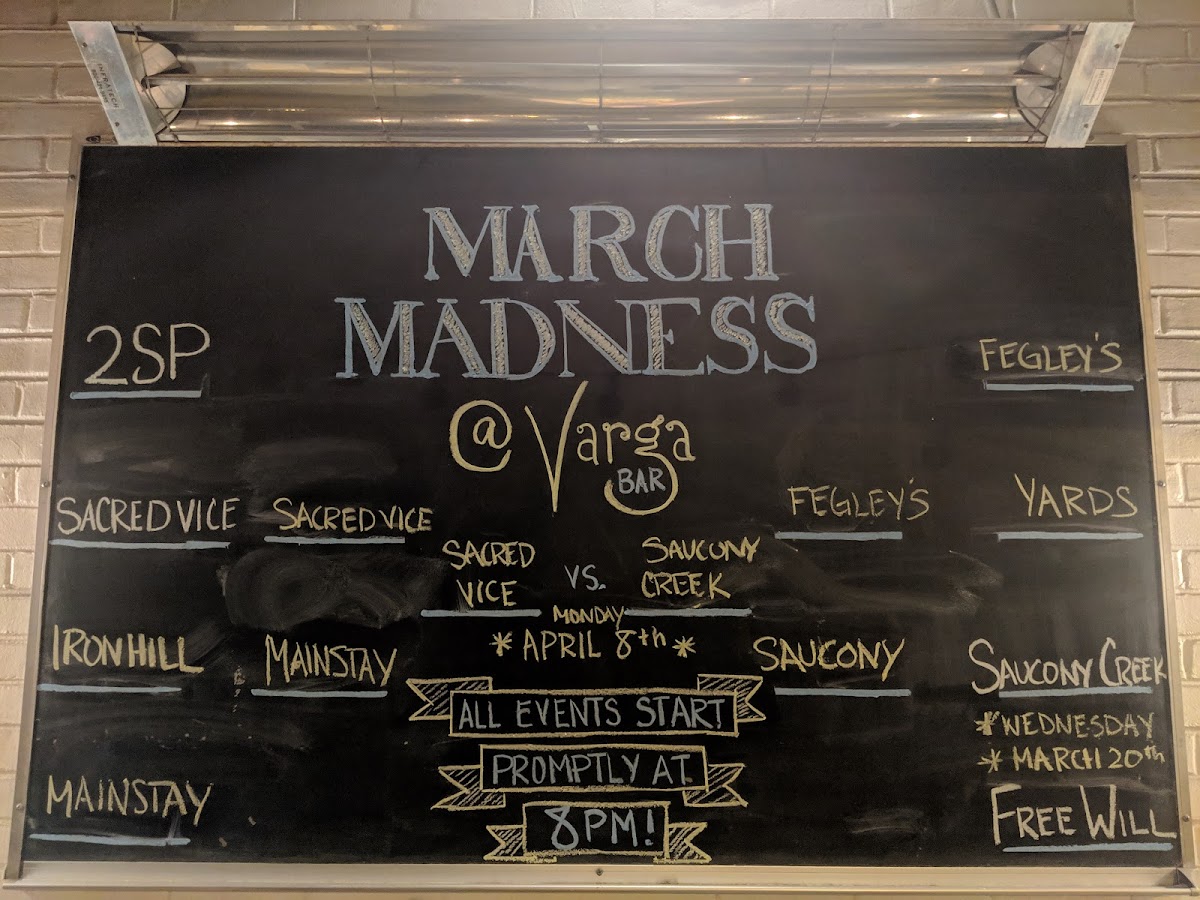 INFRATECH
MARCH
MADNESS
@ Varga
BAR
2SP
FEGLEY'S
SACRED VICE
SACRED VICE
FEGLEY'S
YARDS
SACRED
VICE
VS.
SAUCONY
CREEK
MONDAY
* APRIL 8th *
IRON HILL
MAINSTAY
SAUCONY
SAUCONY CREEK
*WEDNESDAY
* MARCH 20th
ALL EVENTS START
PROMPTLY AT
8PM!
MAINSTAY
FREE WILL